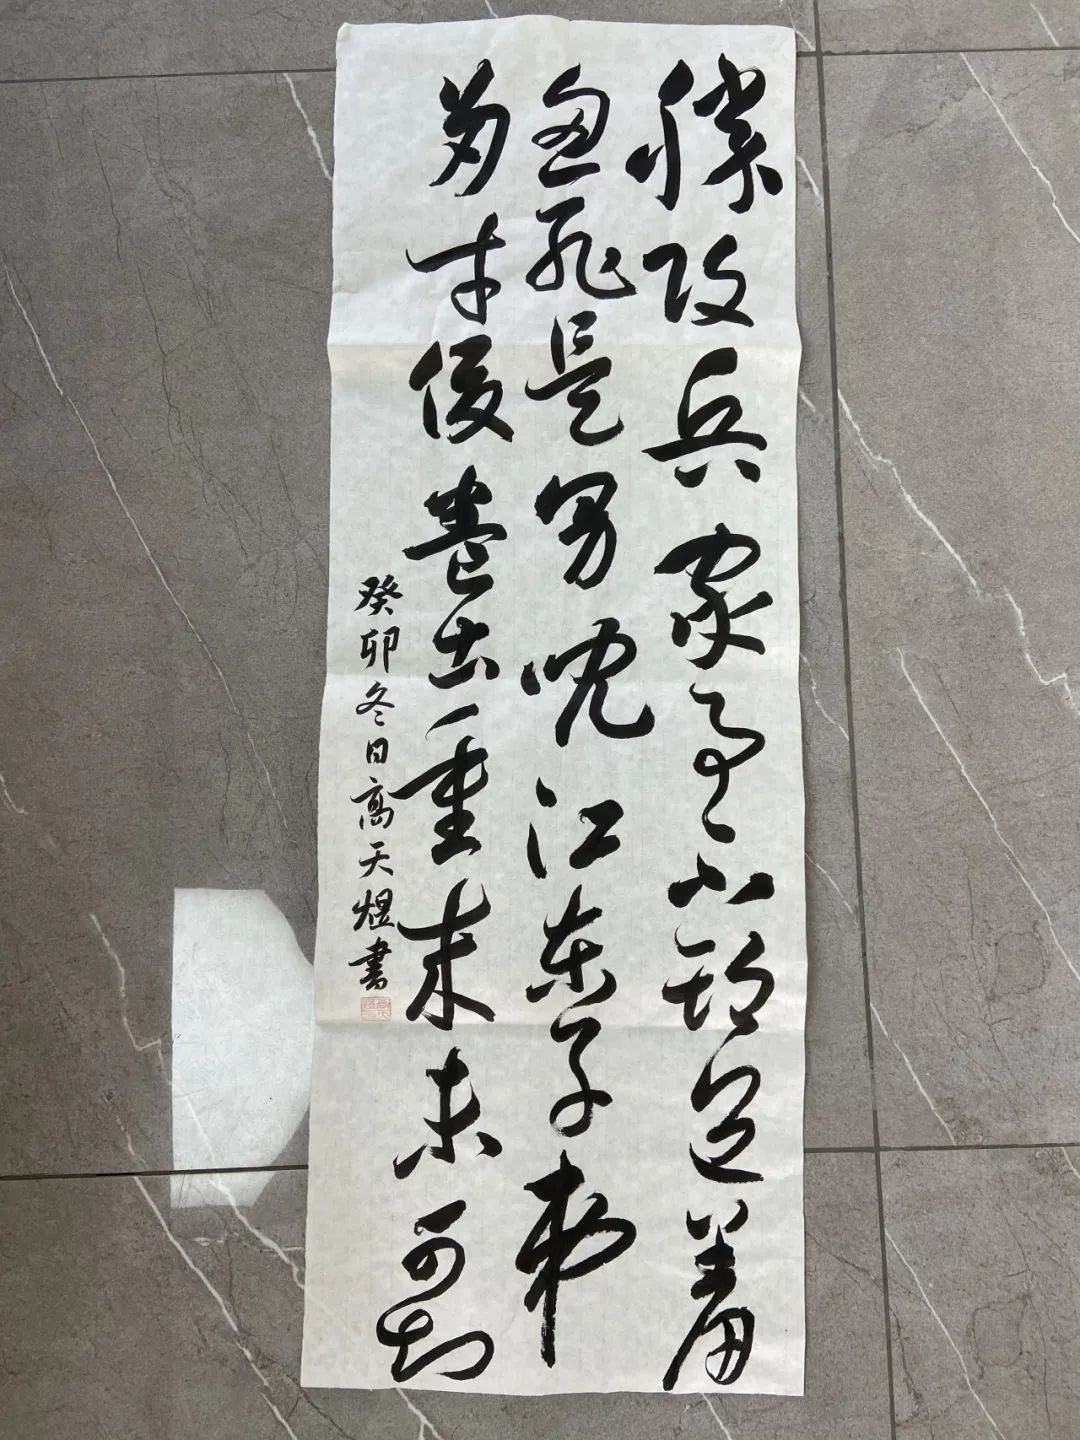 勝败兵家事不期包羞
忍耻是男兒江东子弟
多才俊卷土重来未可知
癸卯冬日高天煜書